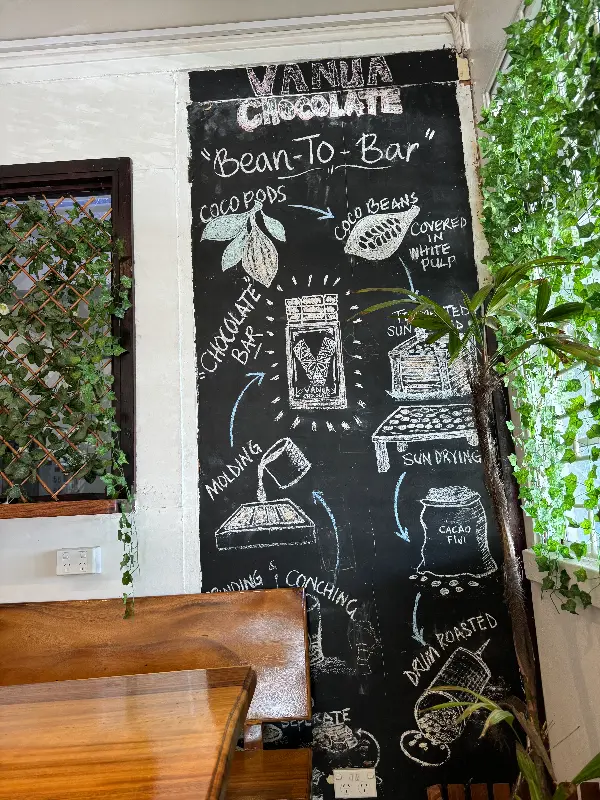 VANUA
CHOCOLATE
"Bean-To-Bar"
COCO PODS
COCO BEANS
COVERED
IN
WHITE
PULP
SUN
SUN DRYING
CACAO
FIJI
DRUM ROASTED
CONCHING
&
MOLDING
"CHOCOLATE"
BAR
VANUA
CHOCOLATE